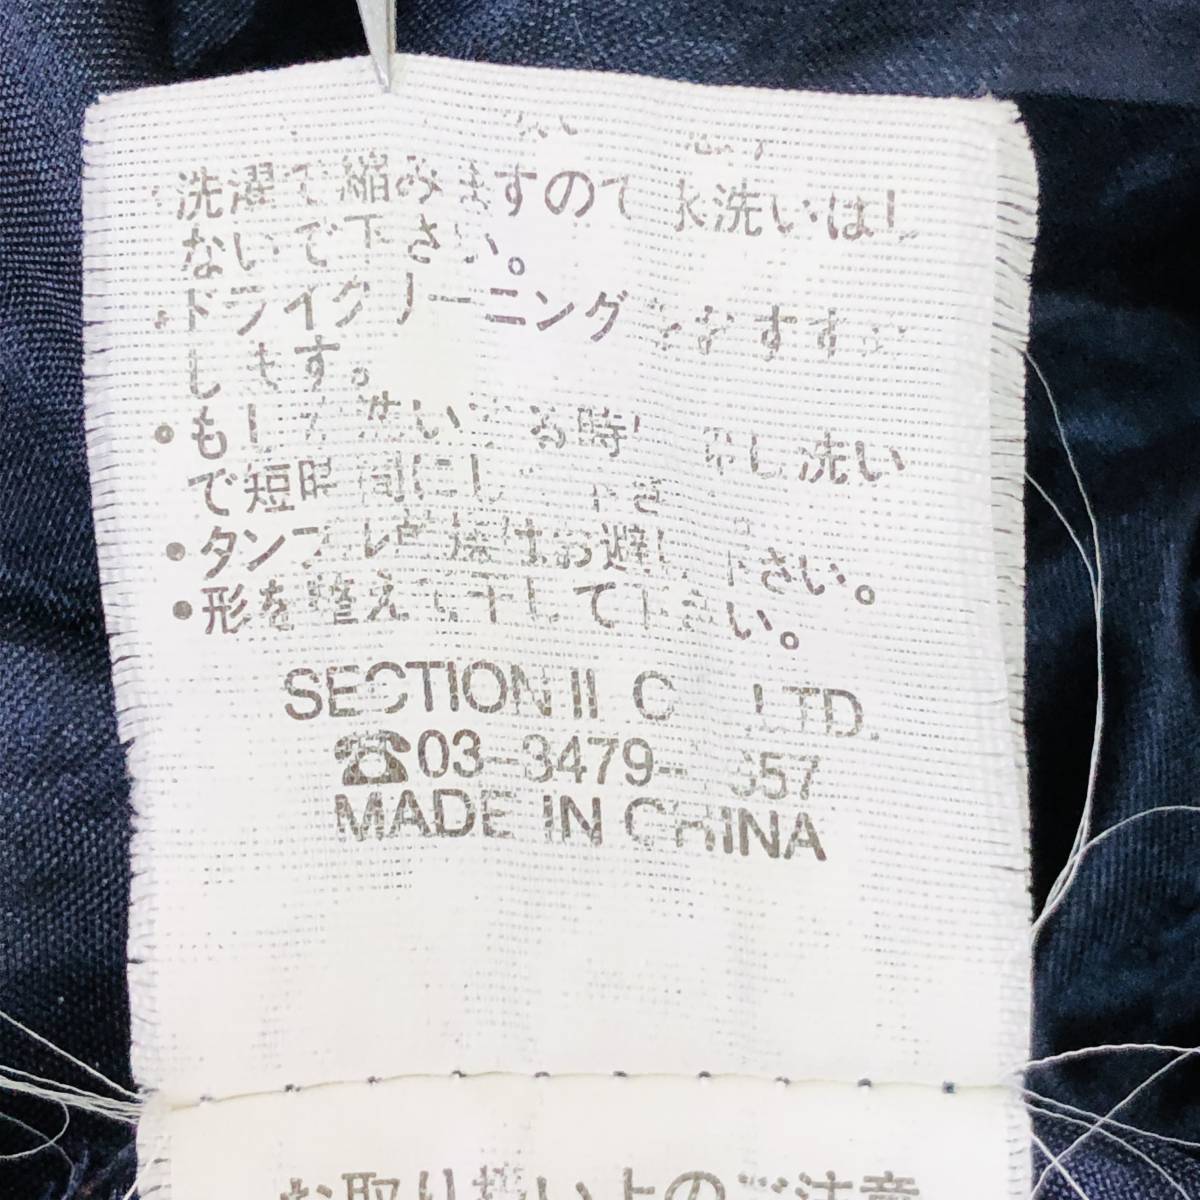 ・洗濯で縮みますので水洗いはし
ないで下さい。
・ドライクリーニングをおすすめ
します。
・もし 洗いする時 押し洗い
で短時間にして下さ
・タンブル乾燥はお避け下さい。
・形を整えて干して下さい。
SECTION II CO.,LTD.
☎03-3479-
MADE IN CHINA
お取り扱い上のご注意